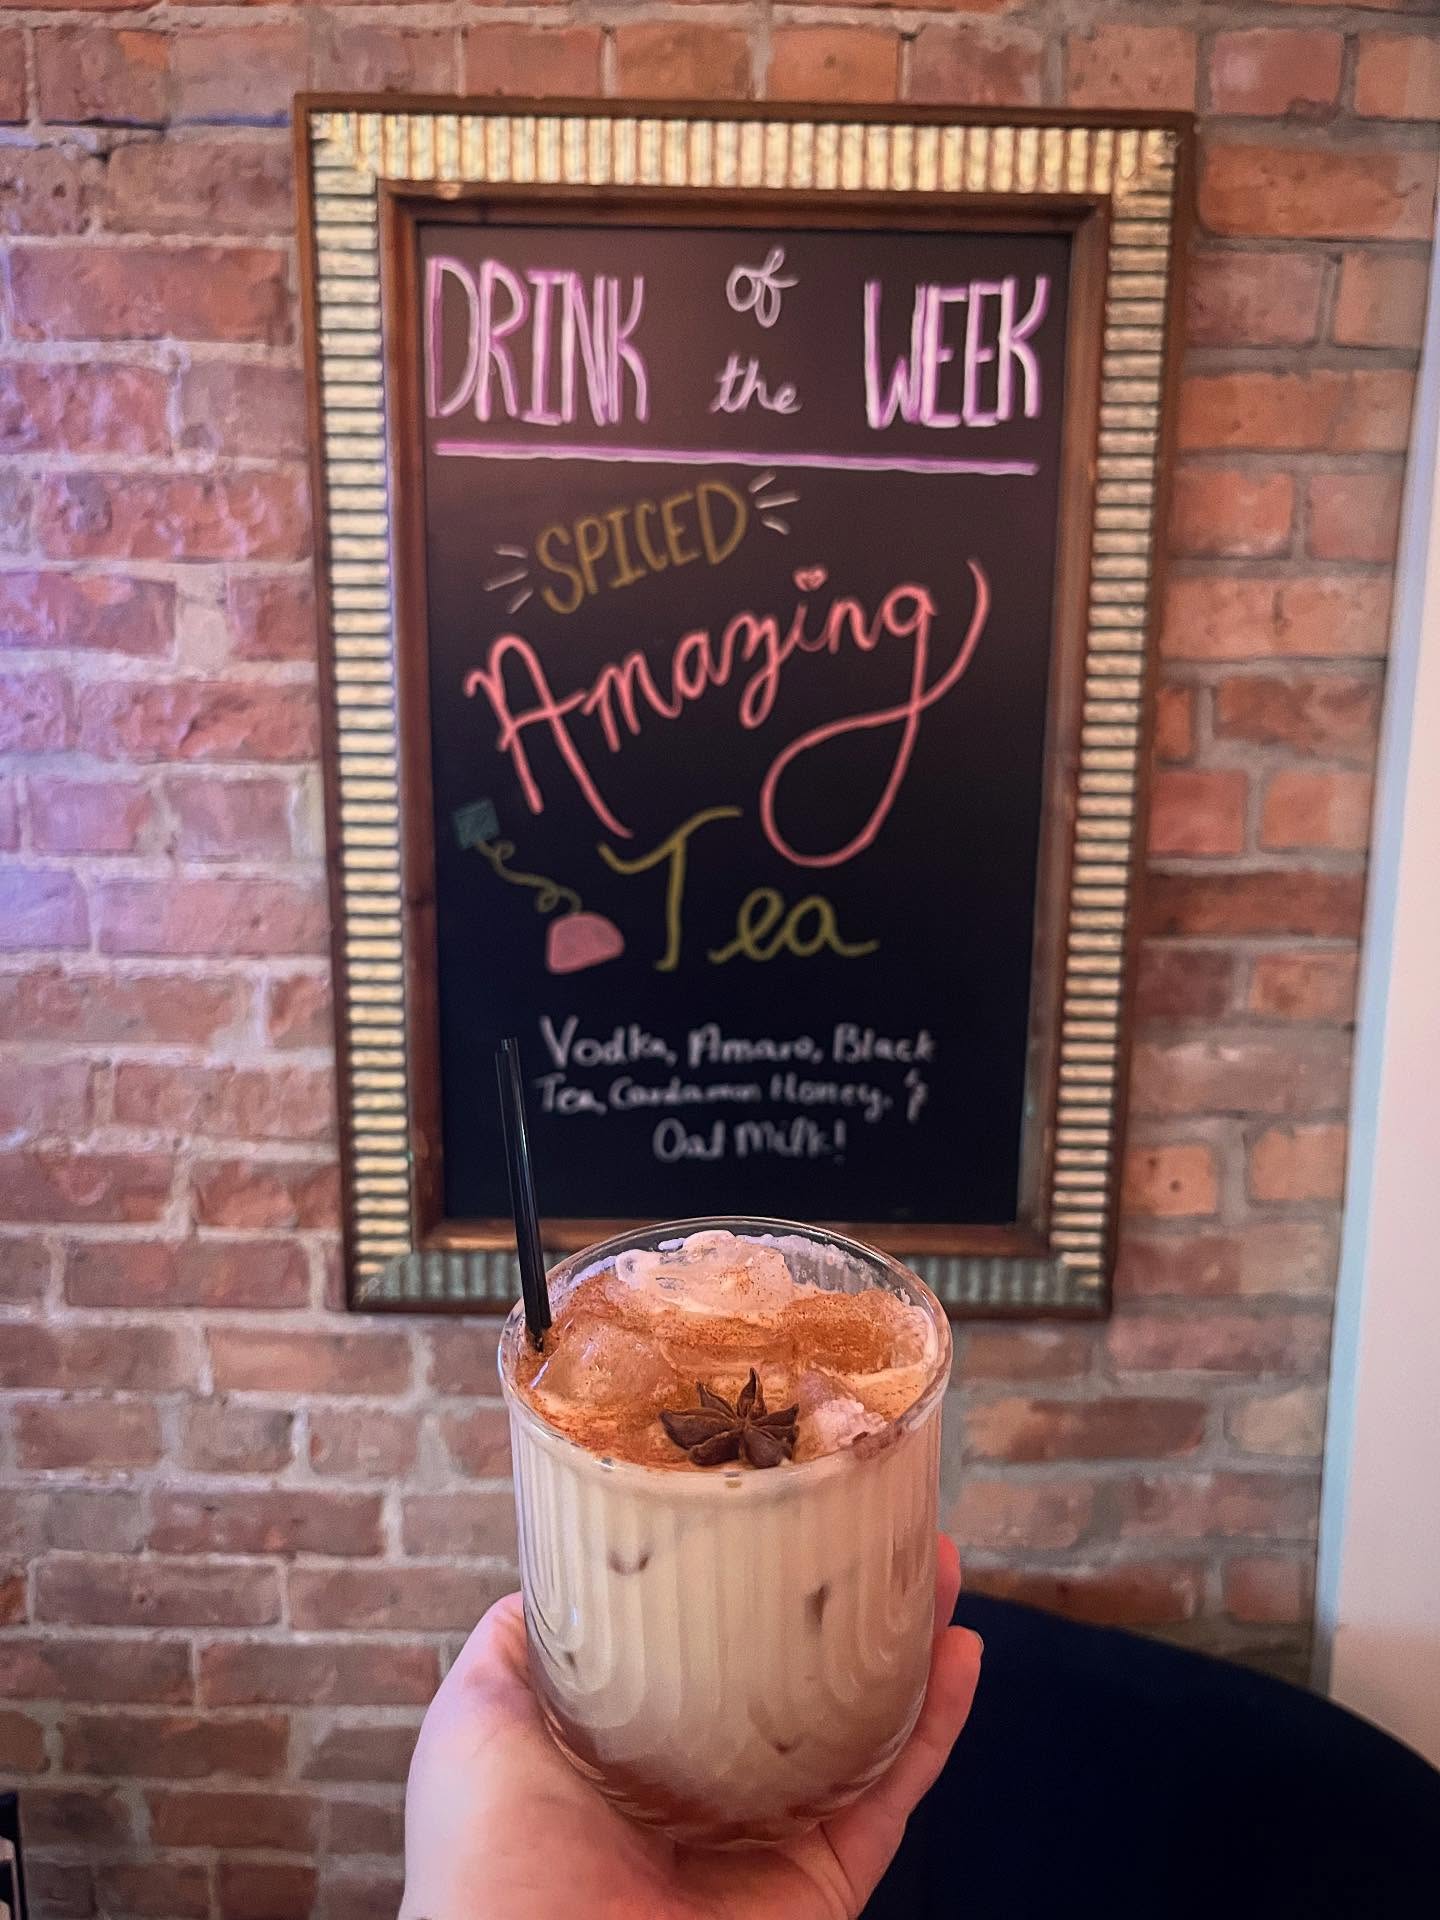 DRINK of the WEEK
SPICED
Amazing
Tea
Vodka, Amaro, Black
Tea, Cardamom Honey, &
Oat Milk!